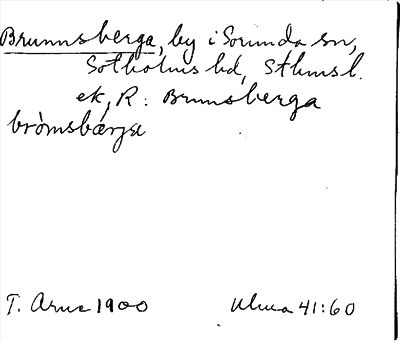 Brunnsberga, by i Sorunda sn,
Sotholms hd, Sthms l.
ek, R: Brunsberga
bròmsbærja
T. Arne 1900 Ulma 41:60